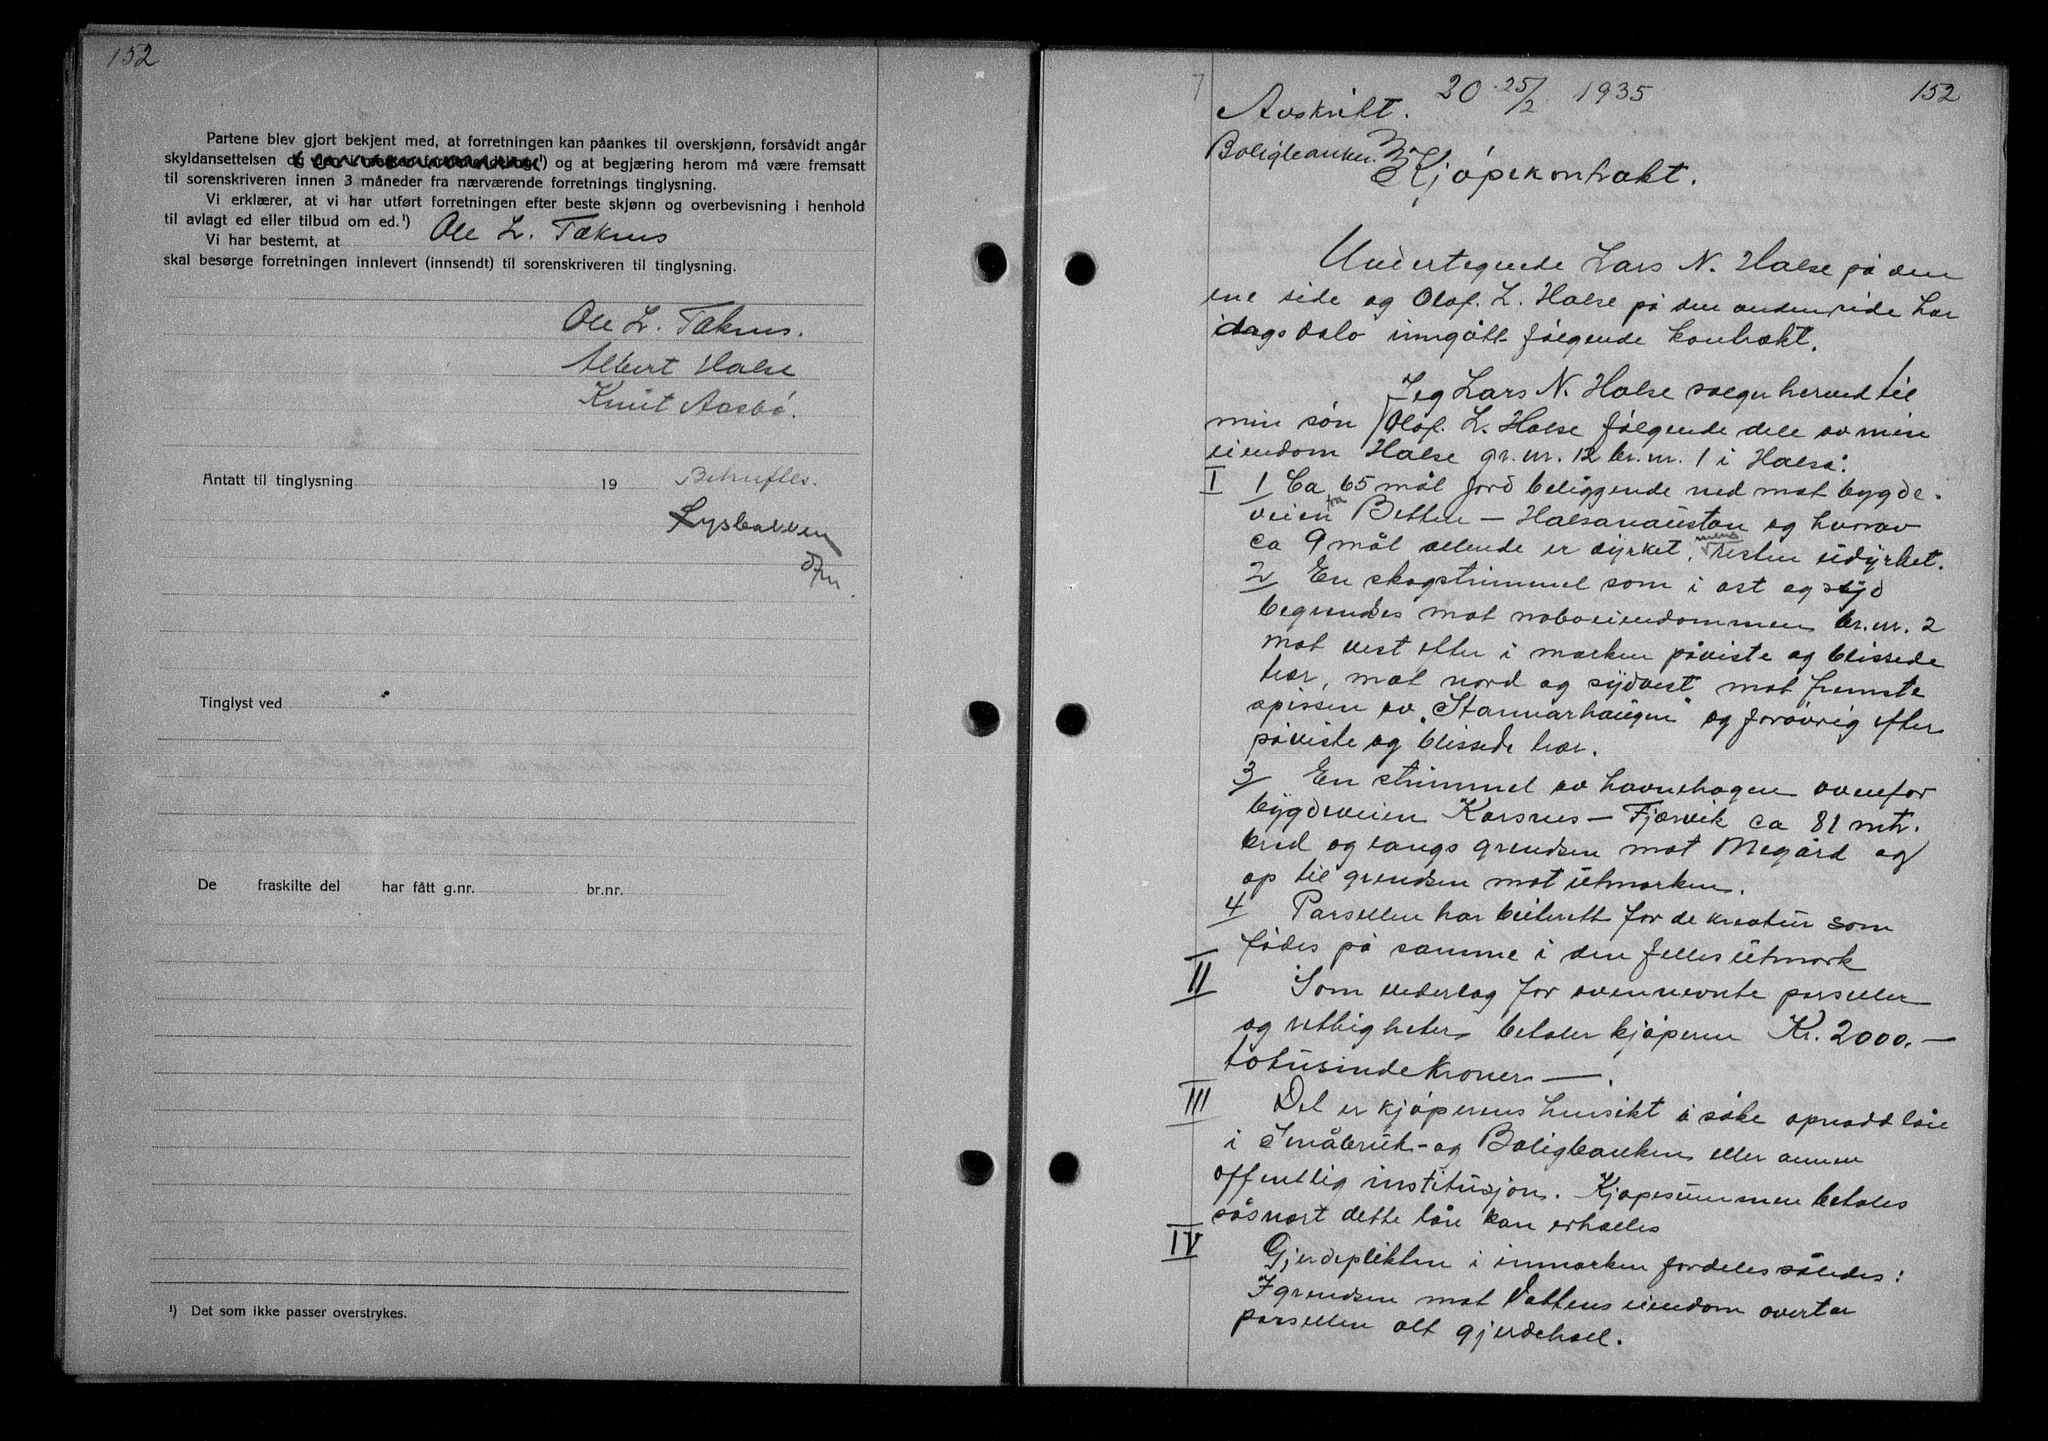 152
Partene blev gjort bekjent med, at forretningen kan påankes til overskjønn, forsåvidt angår
skyldansettelsen og ¹) og at begjæring herom må være fremsatt
til sorenskriveren innen 3 måneder fra nærværende forretnings tinglysning.
Vi erklærer, at vi har utført forretningen efter beste skjønn og overbevisning i henhold
til avlagt ed eller tilbud om ed.¹)
Vi har bestemt, at Ole L. Tæknes
skal besørge forretningen innlevert (innsendt) til sorenskriveren til tinglysning.
Ole L. Tæknes.
Albert Halse
Knut Aasbø.
Antatt til tinglysning 19 Bekreftes.
Lysbakken
dfm.
Tinglyst ved
De fraskilte del har fått g.nr. br.nr.
¹) Det som ikke passer overstrykes.
7 20 25/2 1935 152
Avskrift.
Boligbanken.
Kjøpekontrakt.
Undertegnede Lars N. Halse på den
ene side og Olaf. L. Halse på den anden side har
idag inngått følgende kontrakt.
Jeg Lars N. Halse selger herved til
min søn Olaf. L. Halse følgende dele av min
eiendom Halse gr. nr. 12 br. nr. 1 i Halsa:
I 1 Ca 65 mål jord beliggende ned mot bygde-
veien fra Betten – Halsanaustan og hvorav
ca 9 mål allende er dyrket, mens resten udyrket.
2 En skogstrimmel som i øst og syd
begrendses mot naboeiendommen br. nr. 2
mot vest efter i marken påviste og blissede
trær, mot nord og sydvest mot fremste
spissen av "Stannarhaugen" og forøvrig efter
påviste og blissede trær.
3 En strimmel av havnehagen ovenfor
bygdeveien Korsnes – Fjærvik ca 81 mtr.
bred og langs grendsen mot Megård og
op til grendsen mot utmarken.
4 Parsellen har beiterett for de kreatur som
fødes på samme i den felles utmark
II Som vederlag for ovennevnte parseller
og rettigheter betaler kjøperen Kr. 2000.—
totusindekroner —.
III Det er kjøperens hensikt å søke opnådd lån
i Småbruk- og Boligbanken eller annen
offentlig institusjon. Kjøpesummen betales
såsnart dette lån kan erholdes
IV Gjerdeplikten i inmarken fordeles således:
I grendsen mot Vattens eiendom overtar
parsellen alt gjerdehold.